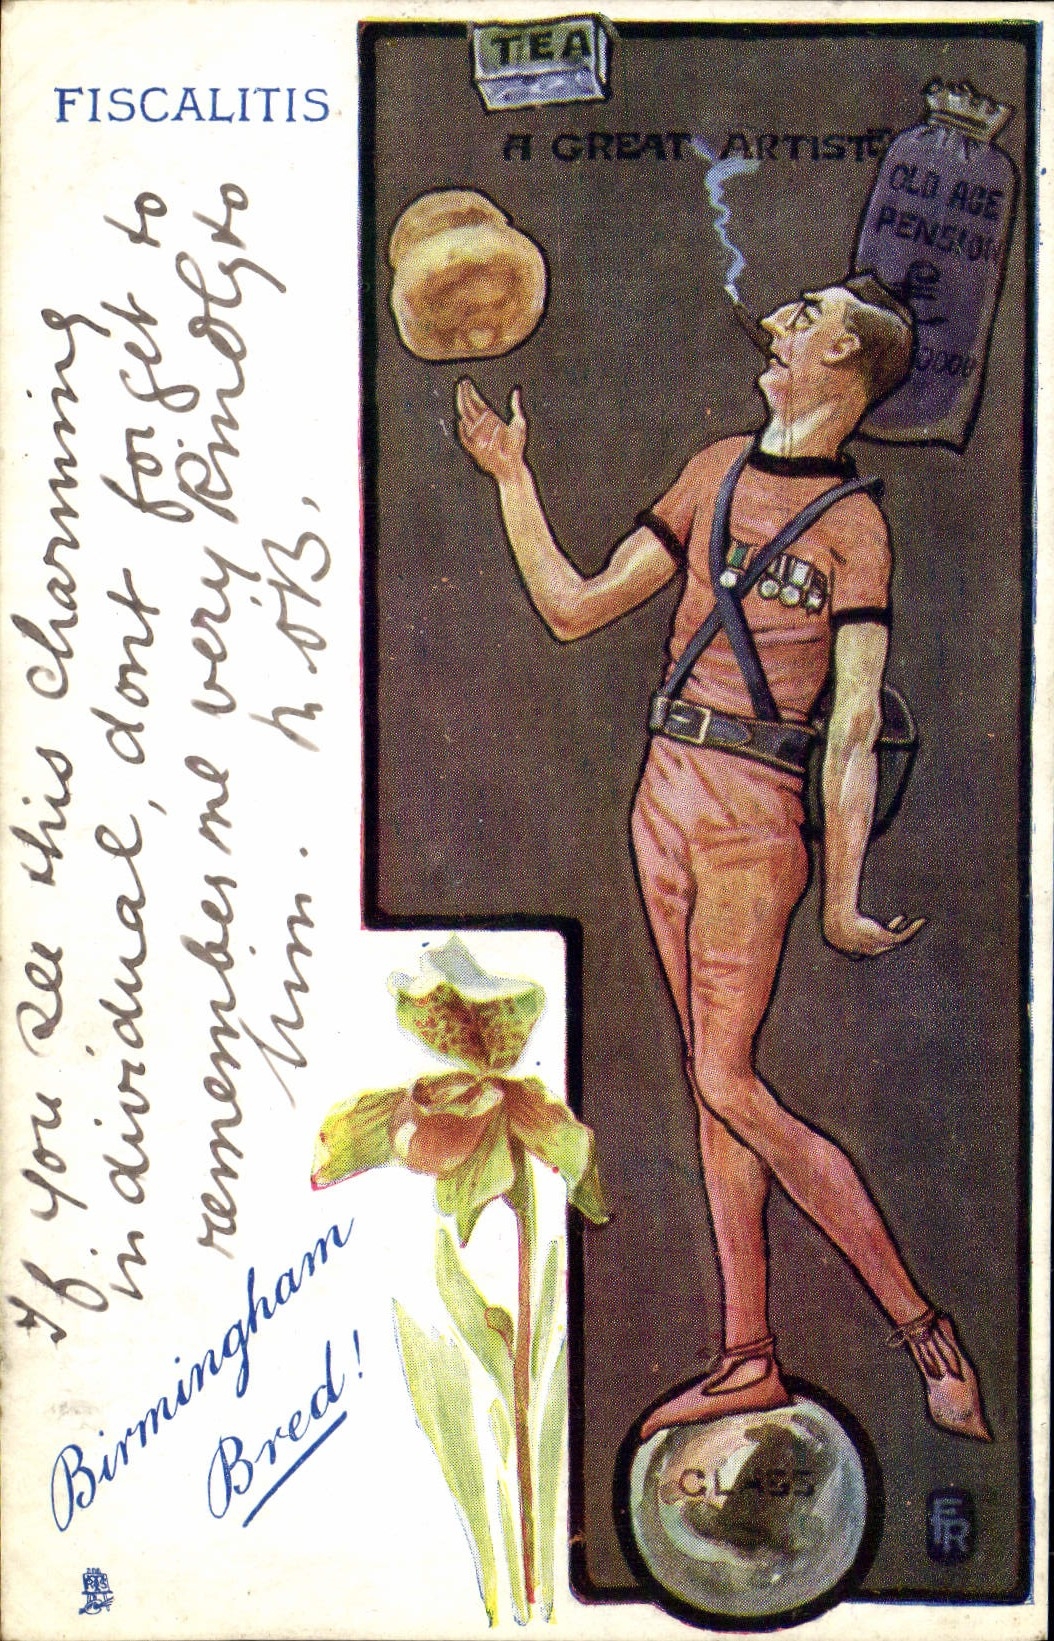 FISCALITIS
TEA
A GREAT ARTISTE
OLD AGE
PENSION
£
If you see this charming
individual, dont forget to
remember me very kindly to
him.
Birmingham
Bred!
GLASS
FR